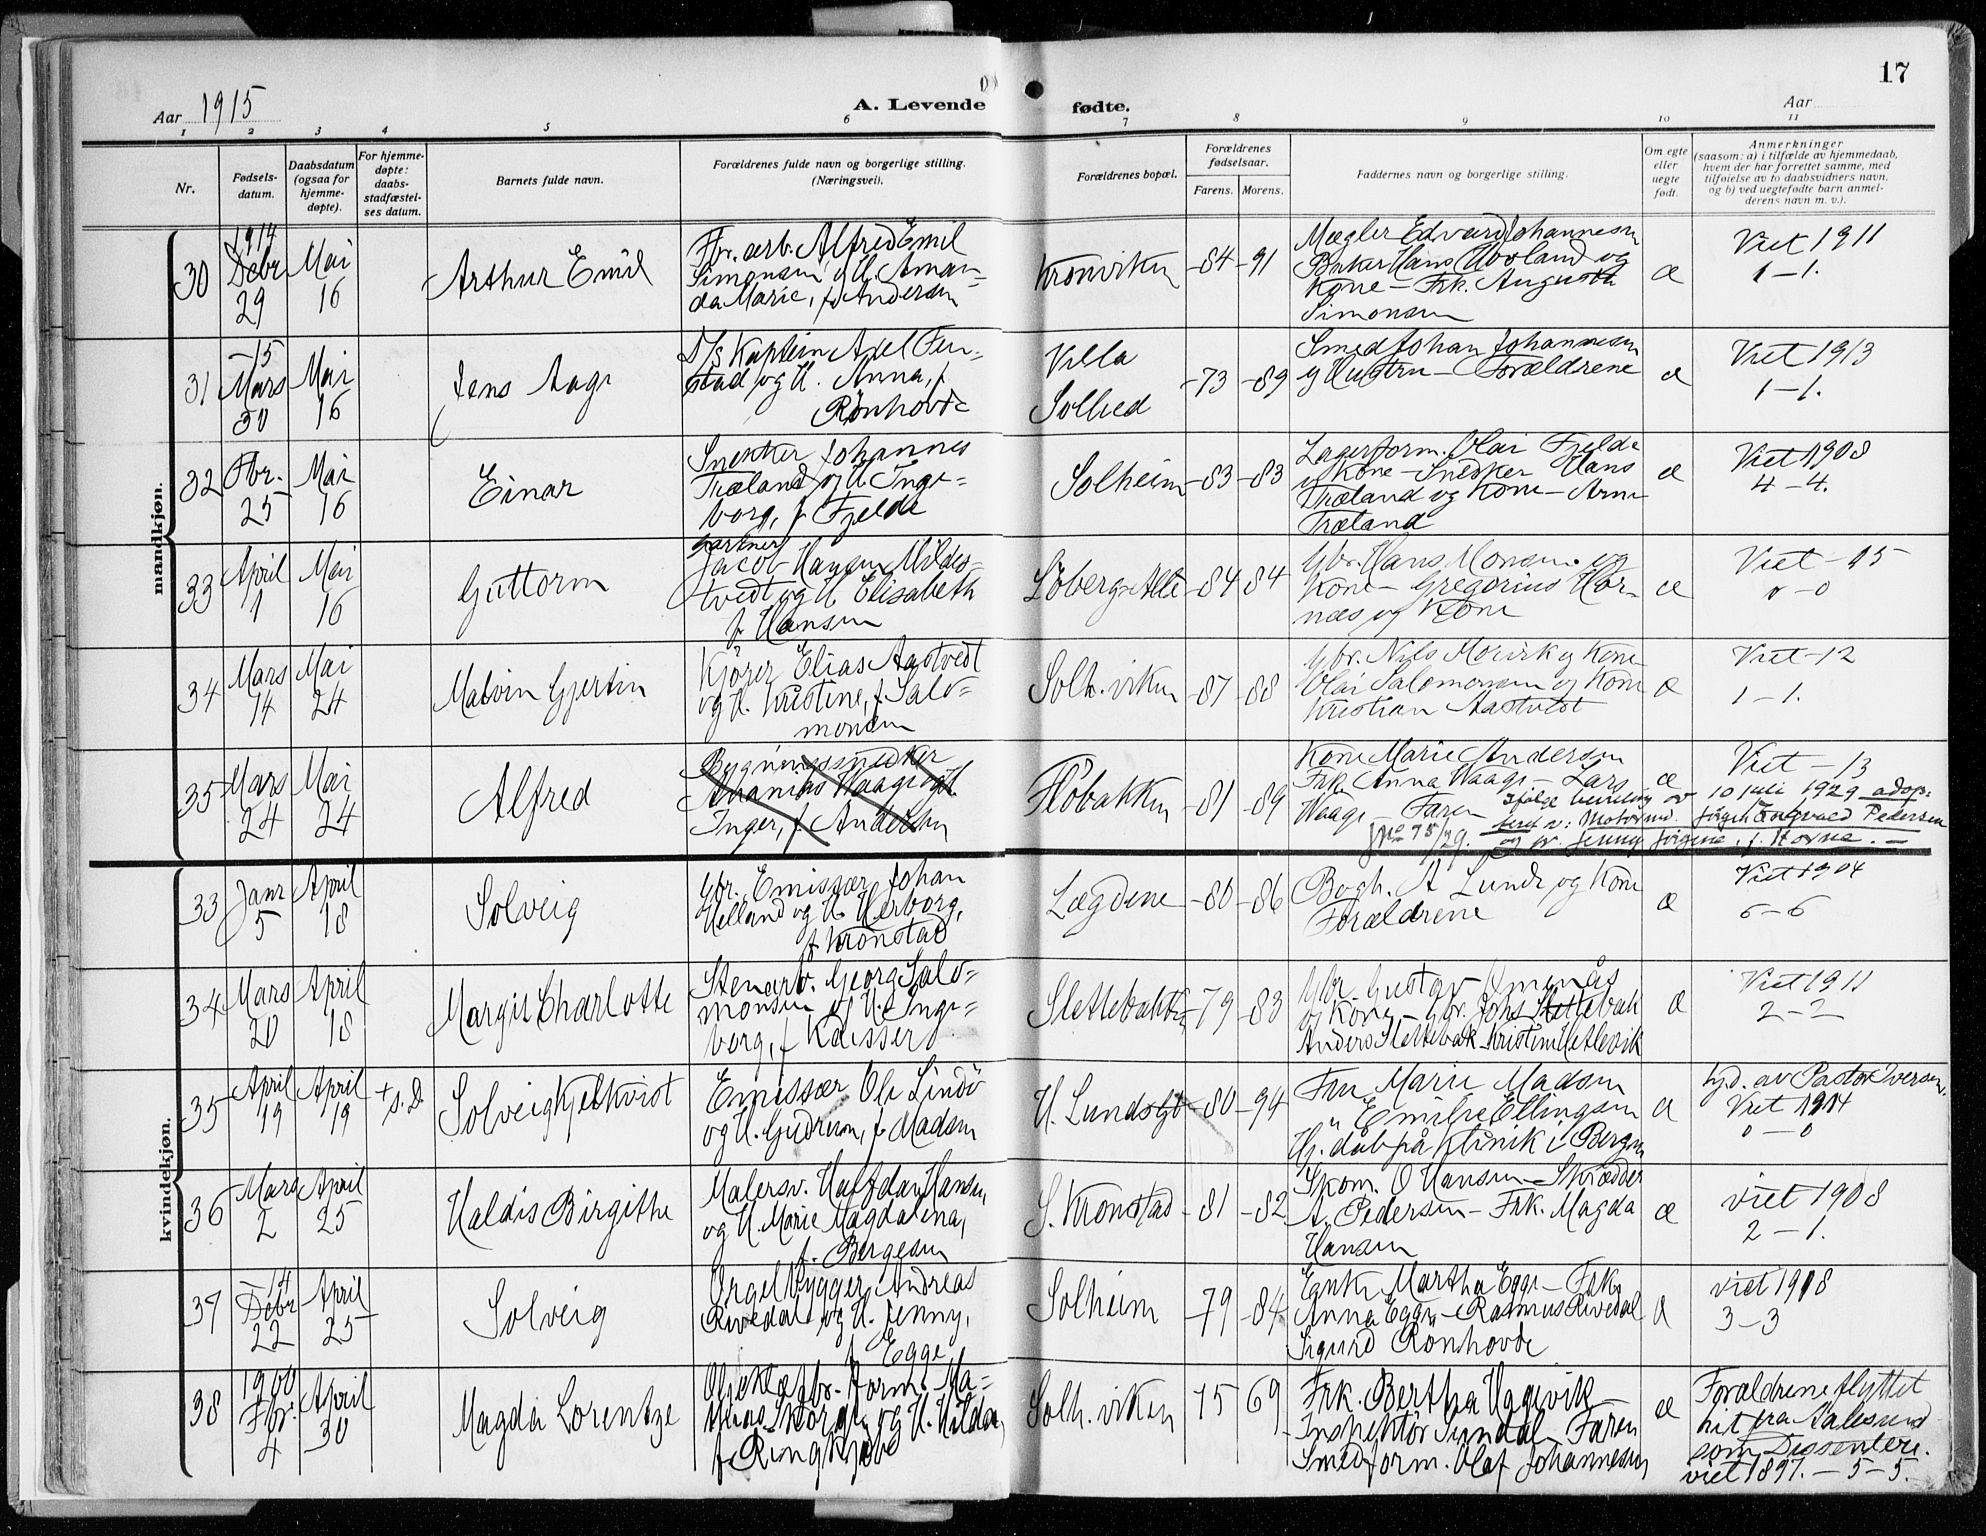 17
Aar 1915
A. Levende
fødte.
Aar
1 2 3 4 5 6 7 8 9 10 11
Nr.
Fødsels-
datum.
Daabsdatum
(ogsaa for
hjemme-
døpte).
For hjemme-
døpte:
daabs-
stadfæstel-
ses datum.
Barnets fulde navn.
Forældrenes fulde navn og borgerlige stilling.
(Næringsvei).
Forældrenes bopæl.
Forældrenes
fødselsaar.
Farens. Morens.
Faddernes navn og borgerlige stilling.
Om egte
eller
uegte
født.
Anmerkninger
(saasom: a) i tilfælde av hjemmedaab,
hvem der har forrettet samme, med
tilføielse av to daabsvidners navn,
og b) ved uegtefødte barn anmel-
derens navn m. v.).
mandkjøn.
30
1914
Debr
29
Mai
16
Arthur Emil
Fbr. arb. Alfred Emil
Simonsen og H. Aman-
da Marie, f. Andersen
Kronviken
-84 -91
Mægler Edvard Johannesen
Baker Hans Hovland og
Kone - Frk. Augusta
Simonsen
æ
Viet 1911
1-1.
31
-15
Mars
30
Mai
16
Jens Aage
D/s Kaptein Axel Fin-
stad og H. Anna, f
Rönhovde
Villa
Solhed
-73 -89
Smed Johan Johannesen
og Hustru - Forældrene
æ
Viet 1913
1-1.
32
Fbr.
25
Mai
16
Einar
Snekker Johannes
Træland og H. Inge-
borg, f Fjelde
Solheim
-83 -83
Lagerform. Olai Fjelde
og Kone - Snedker Hans
Træland og Kone - Arne
Træland
æ
Viet 1908
4-4.
33
April
1
Mai
16
Guttorm
Gartner
Jacob Hansen Mildes-
tvedt og H Elisabeth
f. Hansen
Löberg-Alle
-84 84
Gbr. Hans Monsen og
Kone - Gregorius Hor-
næs og Kone
æ
Viet -15
0-0
34
Mars
14
Mai
24
Malvin Gjertin
Kjörer Elias Aastvedt
og H. Kristine, f Salo-
monsen
Solh.viken
-87 -88
Gbr. Nils Morvik og Kone
Olai Salomonsen og Kone
Kristian Aastvedt
æ
Viet -12
1-1.
35
Mars
24
Mai
24
Alfred
Bygningssnedker
Ananias Waage og H
Inger, f Andersen
Flöbakken
-81 -89
Kone Marie Andersen
Frk. Anna Waage - Lars
Waage - Faren
æ
Viet -13
Ifölge bevilling av 10 juli 1929 adop-
tert av: Motormd. Jörgen Engvald Pedersen
og hr. Jenny Jörgine, f. Hovne. -
J No 75/29.
kvindekjøn.
33
Janr
5
April
18
Solveig
Gbr. Emissær Johan
Helland og H. Herborg,
f Kronstad
Lægdene
-80 -86
Bogh. A Lunde og Kone
Forældrene
æ
Viet 1904
6-6
34
Mars
20
April
18
Margit Charlotte
Stenarb. Georg Salo-
monsen og H. Inge-
borg, f Kaisser
Slettebakken
-79 -83
Gbr. Gustav Ømenås
og Kone - Gbr. Johs Slettebak
Anders Slettebak - Kristine Hetlevik
æ
Viet 1911
2-2
35
April
19
April
19
+
s. D.
Solveig Kjelkvist
Emissær Ole Lindö
og H. Gudrun, f Madsen
H. Lundsgt
-80 -94
Fru Marie Madsen
" Emilie Ellingsen
Hj. dåb på klinik i Bergen
æ
Hjd. av Pastor Iversen.
Viet 1914
0-0
36
Mars
2
April
25
Haldis Birgithe
Malersv. Halfdan Hansen,
og H. Marie Magdalena,
f. Bergesen
S. Kronstad
-81 -82
Skom. O Hansen - Skrædder
A. Pedersen - Frk. Magda
Hansen
æ
viet 1908
2-1.
37
-14
Debr
22
April
25
Solveig
Orgelbygger Andreas
Rivedal og H. Jenny,
f Egge
Solheim
-79 -84
Enke Martha Egge - Frk.
Anna Egge - Rasmus Rivedal
Sigurd Rönhovde
æ
viet 1908
3-3
38
1900
Fbr.
4
April
30
Magda Lorentze
Oljeklæfbr. Form. Ma-
thias Skorge og H. Hilda,
f Ringkjöb
Solh. viken
75 69
Frk. Bertha Uggevik
Inspektör Sundal Faren
Smedform. Olaf Johannesen
æ
Forældrene flyttet
hit fra Aalesund
som Dissentere.
viet 1897. - 5-5.